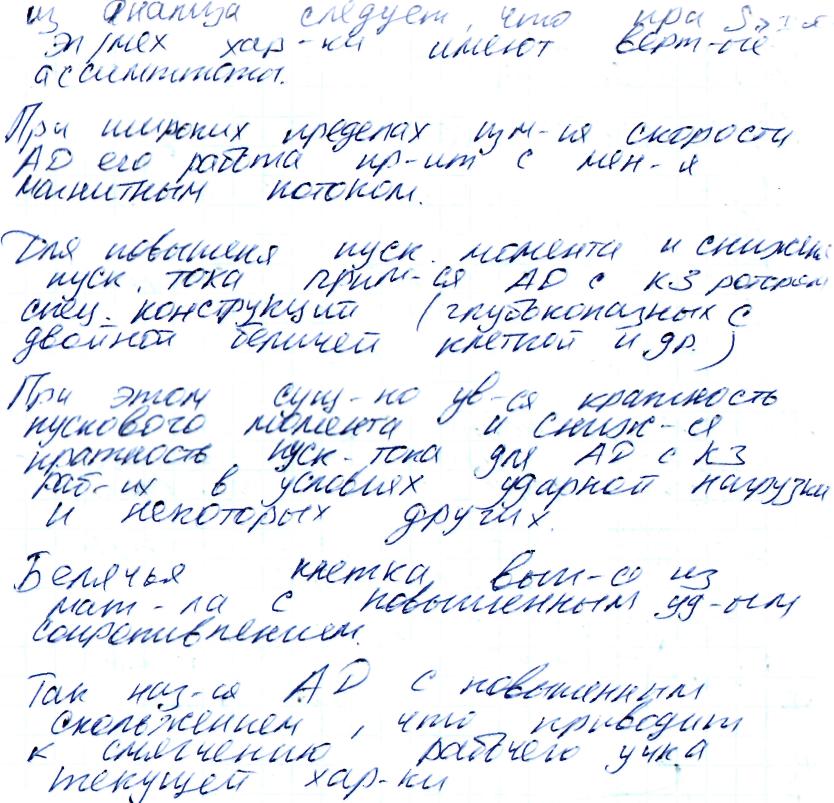 из анализа следует, что при S
эл/мех хар-ки имеют верт-ые
ассимптоты.
При широких пределах изм-ия скорости
AD его работа пр-ит с мен-я
магнитным потоком.
Для повышеня пуск. момента и снижен
пуск. тока прим-ся AD с КЗ ротором
спец. конструкций (глубокопазных с
двойной беличей клеткой и др.)
При этом сущ-но ув-ся кратность
пускового момента и сниж-ся
кратность пуск-тока для AD с КЗ
раб-их в условиях ударной нагрузки
и некоторых других.
Белячья клетка вып-ся из
мат-ла с повышенным уд-ым
сопротивлением.
Так наз-ся AD с повышенным
скольжением, что приводит
к смягчению рабочего уч-ка
текущей хар-ки